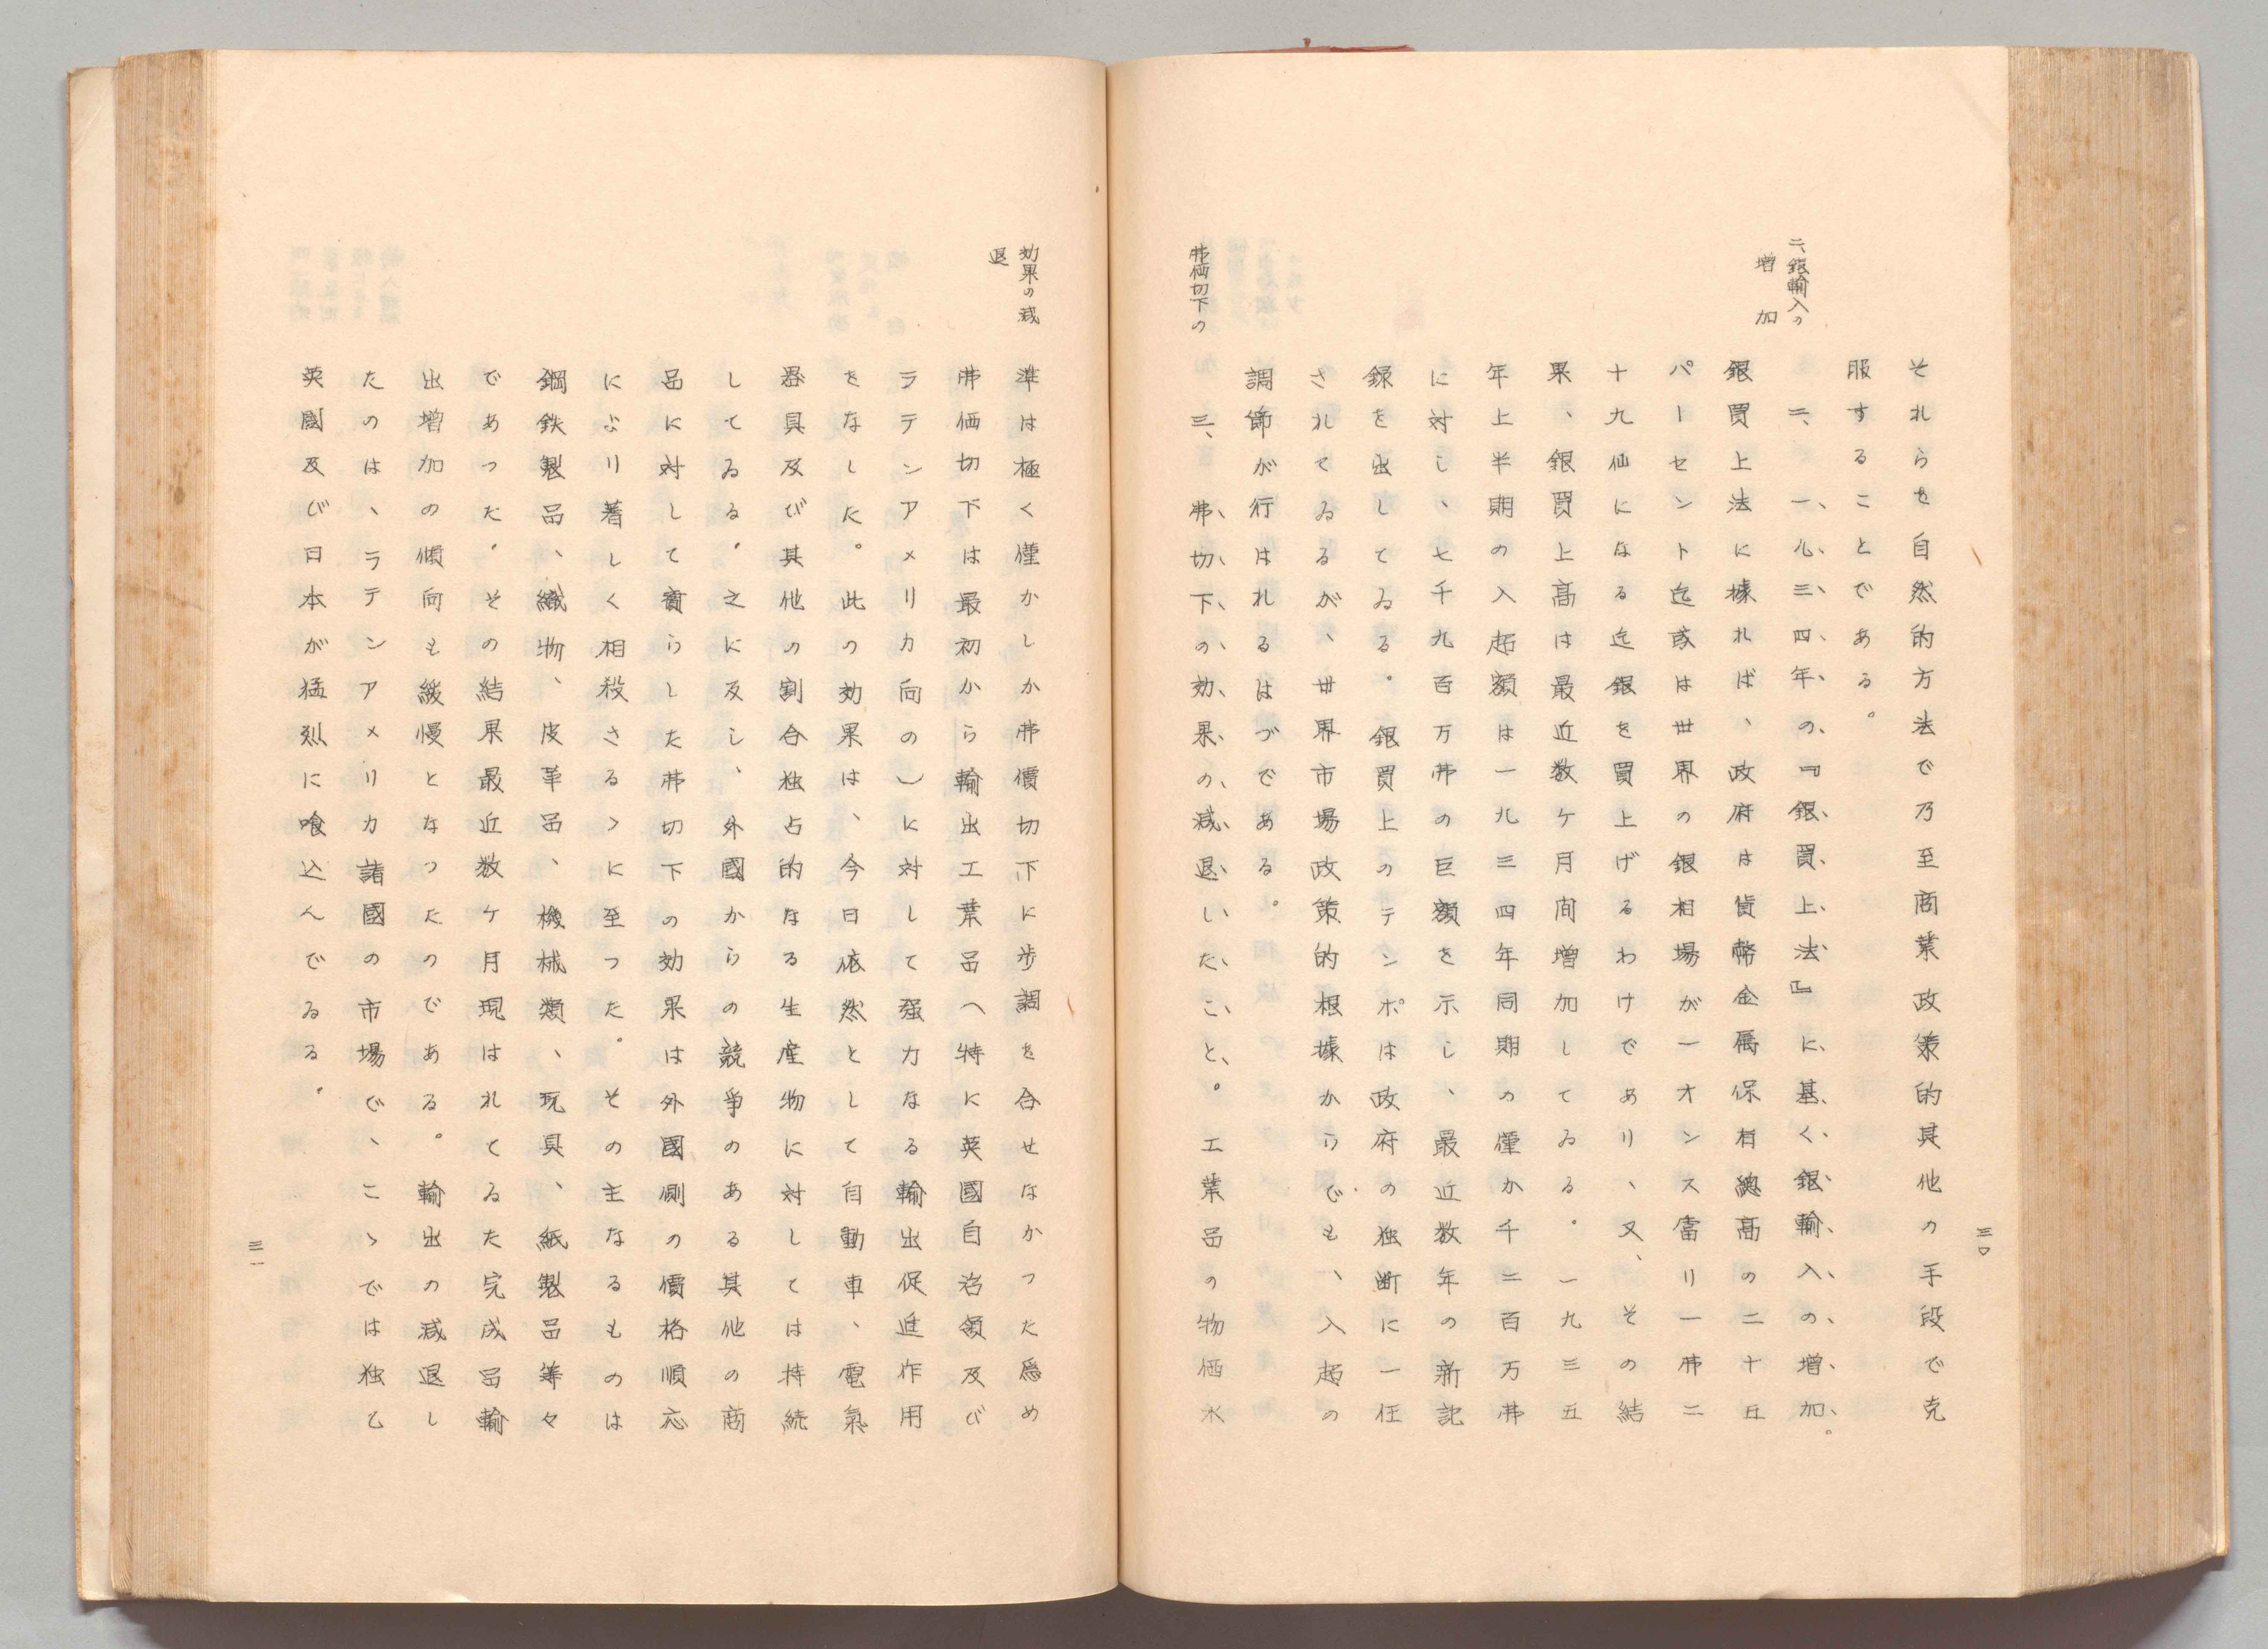 それらを自然的方法で乃至商業政策的其他の手段で克
服することである。
二、銀輸入の
増加
二、一九三四年の『銀買上法』に基く銀輸入の増加。
銀買上法に據れば、政府は貨幣金属保有總高の二十五
パーセント迄或は世界の銀相場が一オンス當り一弗二
十九仙になる迄銀を買上げるわけであり、又、その結
果、銀買上高は最近数ケ月間増加してゐる。一九三五
年上半期の入超額は一九三四年同期の僅か千二百万弗
に対し、七千九百万弗の巨額を示し、最近数年の新記
録を出してゐる。銀買上のテンポは政府の独断に一任
されてゐるが、世界市場政策的根據からでも、入超の
調節が行はれるはづである。
弗価切下の
三、弗切下の効果の減退したこと。工業品の物価水
三〇
効果の減
退
準は極く僅かしか弗價切下に歩調を合せなかつた為め
弗価切下は最初から輸出工業品へ特に英國自治領及び
ラテンアメリカ向の)に対して強力なる輸出促進作用
をなした。此の効果は、今日依然として自動車、電氣
器具及び其他の割合独占的なる生産物に対しては持続
してゐる。之に反し、外國からの競争のある其他の商
品に対して賣らした弗切下の効果は外國側の價格順応
により著しく相殺さるゝに至つた。その主なるものは
鋼鉄製品、織物、皮革品、機械類、玩具、紙製品等々
であつた。その結果最近数ケ月現はれてゐた完成品輸
出増加の傾向も緩慢となつたのである。輸出の減退し
たのは、ラテンアメリカ諸國の市場で、こゝでは独乙
英國及び日本が猛烈に喰込んでゐる。
三一